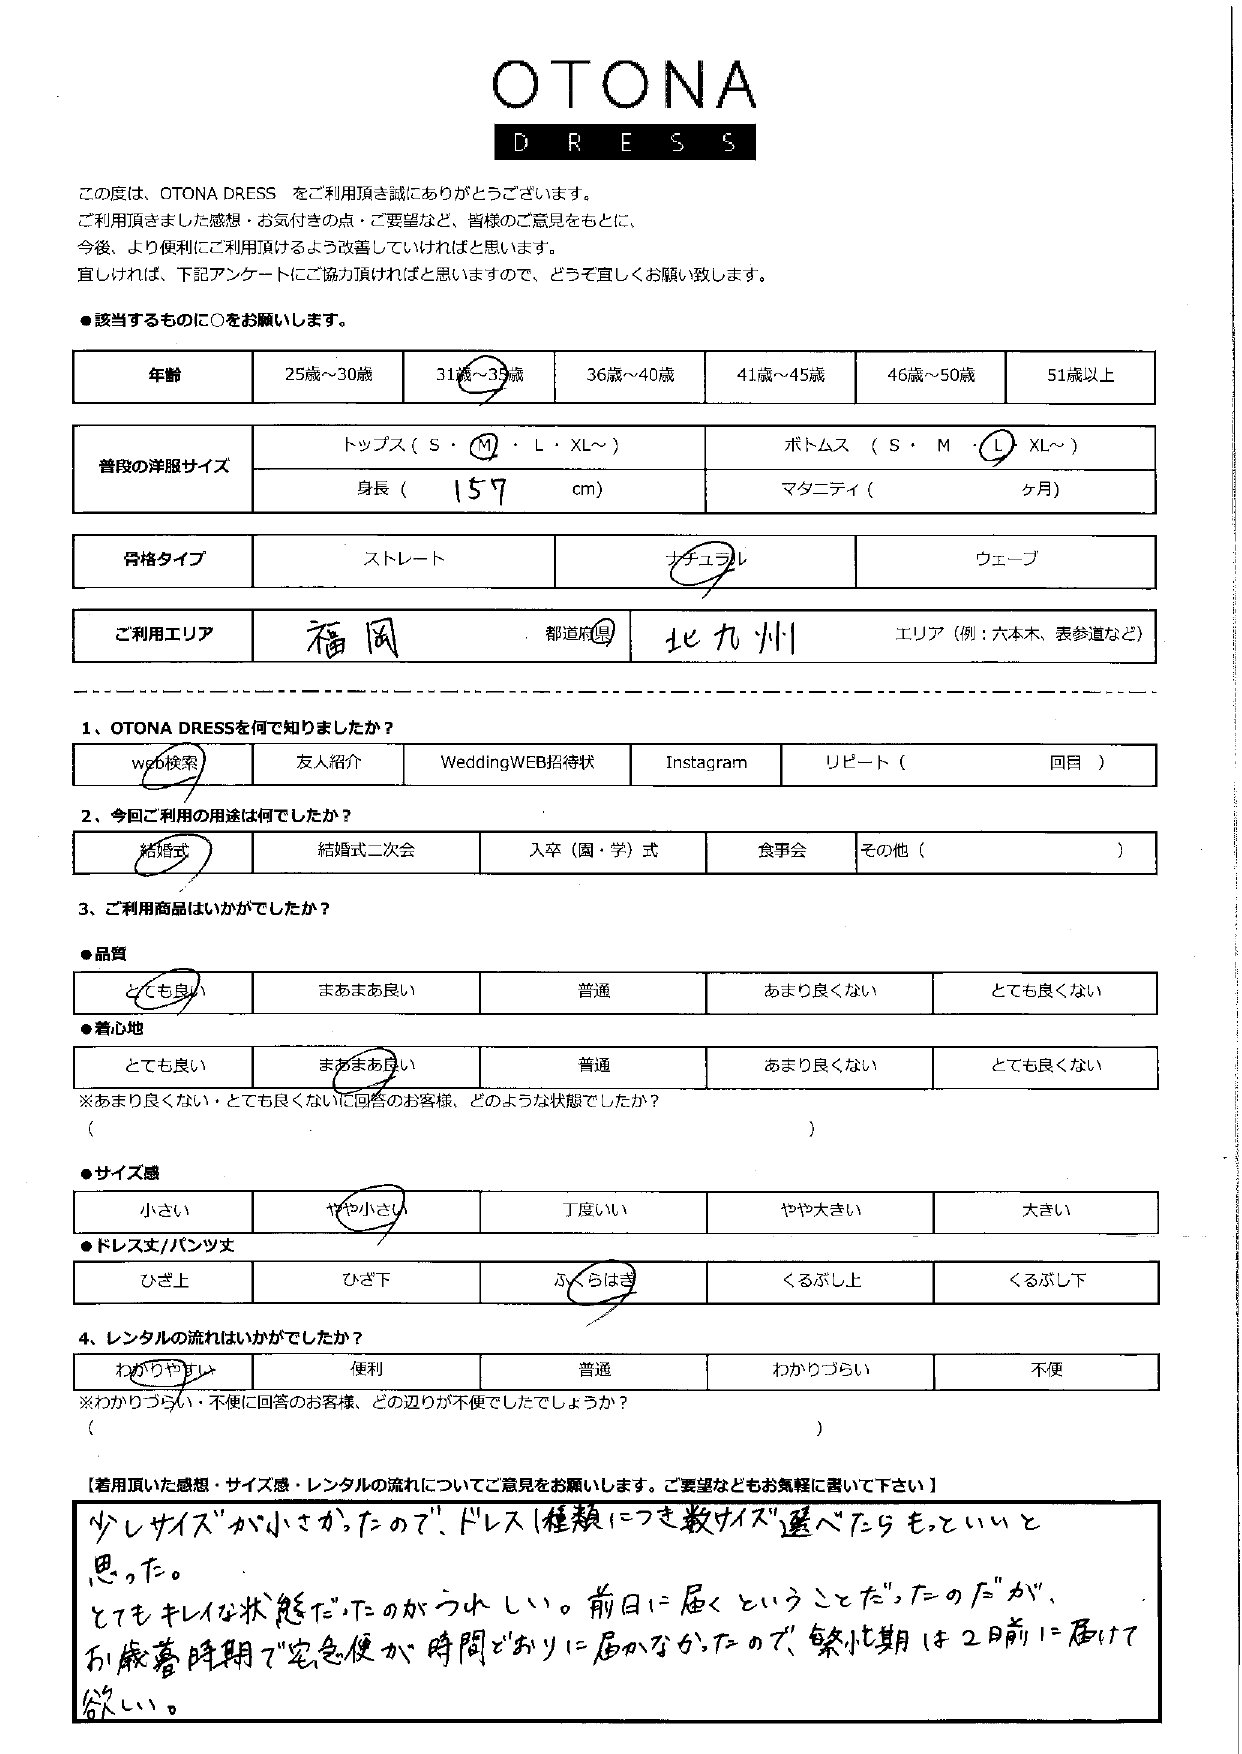 OTONA
DRESS
この度は、OTONA DRESS をご利用頂き誠にありがとうございます。
ご利用頂きました感想・お気付きの点・ご要望など、皆様のご意見をもとに、
今後、より便利にご利用頂けるよう改善していければと思います。
宜しければ、下記アンケートにご協力頂ければと思いますので、どうぞ宜しくお願い致します。
●該当するものに○をお願いします。
年齢 25歳～30歳 31歳～35歳 36歳～40歳 41歳～45歳 46歳～50歳 51歳以上
普段の洋服サイズ トップス（ S ・ M ・ L ・ XL～ ） ボトムス （ S ・ M ・ L ・ XL～ ）
身長（ 157 cm） マタニティ（ ヶ月）
骨格タイプ ストレート ナチュラル ウェーブ
ご利用エリア 福岡 都道府県 北九州 エリア（例：六本木、表参道など）
1、OTONA DRESSを何で知りましたか？
web検索 友人紹介 WeddingWEB招待状 Instagram リピート（ 回目 ）
2、今回ご利用の用途は何でしたか？
結婚式 結婚式二次会 入卒（園・学）式 食事会 その他（ ）
3、ご利用商品はいかがでしたか？
●品質
とても良い まあまあ良い 普通 あまり良くない とても良くない
●着心地
とても良い まあまあ良い 普通 あまり良くない とても良くない
※あまり良くない・とても良くないに回答のお客様、どのような状態でしたか？
（ ）
●サイズ感
小さい やや小さい 丁度いい やや大きい 大きい
●ドレス丈/パンツ丈
ひざ上 ひざ下 ふくらはぎ くるぶし上 くるぶし下
4、レンタルの流れはいかがでしたか？
わかりやすい 便利 普通 わかりづらい 不便
※わかりづらい・不便に回答のお客様、どの辺りが不便でしたでしょうか？
（ ）
【着用頂いた感想・サイズ感・レンタルの流れについてご意見をお願いします。ご要望などもお気軽に書いて下さい】
少しサイズが小さかったので、ドレス1種類につき数サイズ選べたらもっといいと
思った。
とてもキレイな状態だったのがうれしい。前日に届くということだったのだが、
お歳暮時期で宅急便が時間どおりに届かなかったので、繁忙期は2日前に届けて
欲しい。